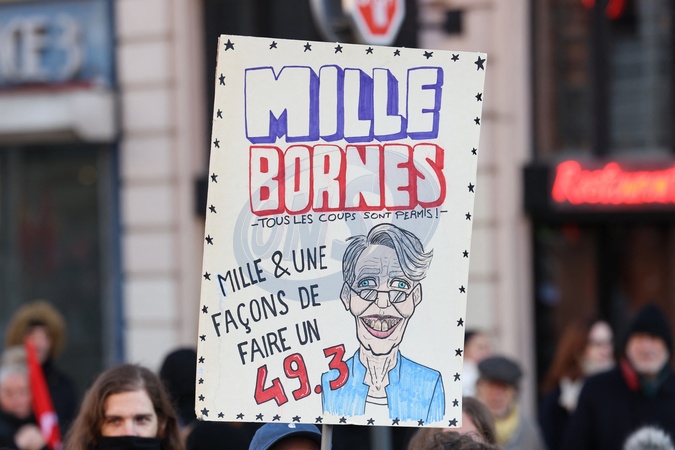 MILLE
BORNES
-TOUS LES COUPS SONT PERMIS!-
MILLE & UNE
FAÇONS DE
FAIRE UN
49.3
Restaurant